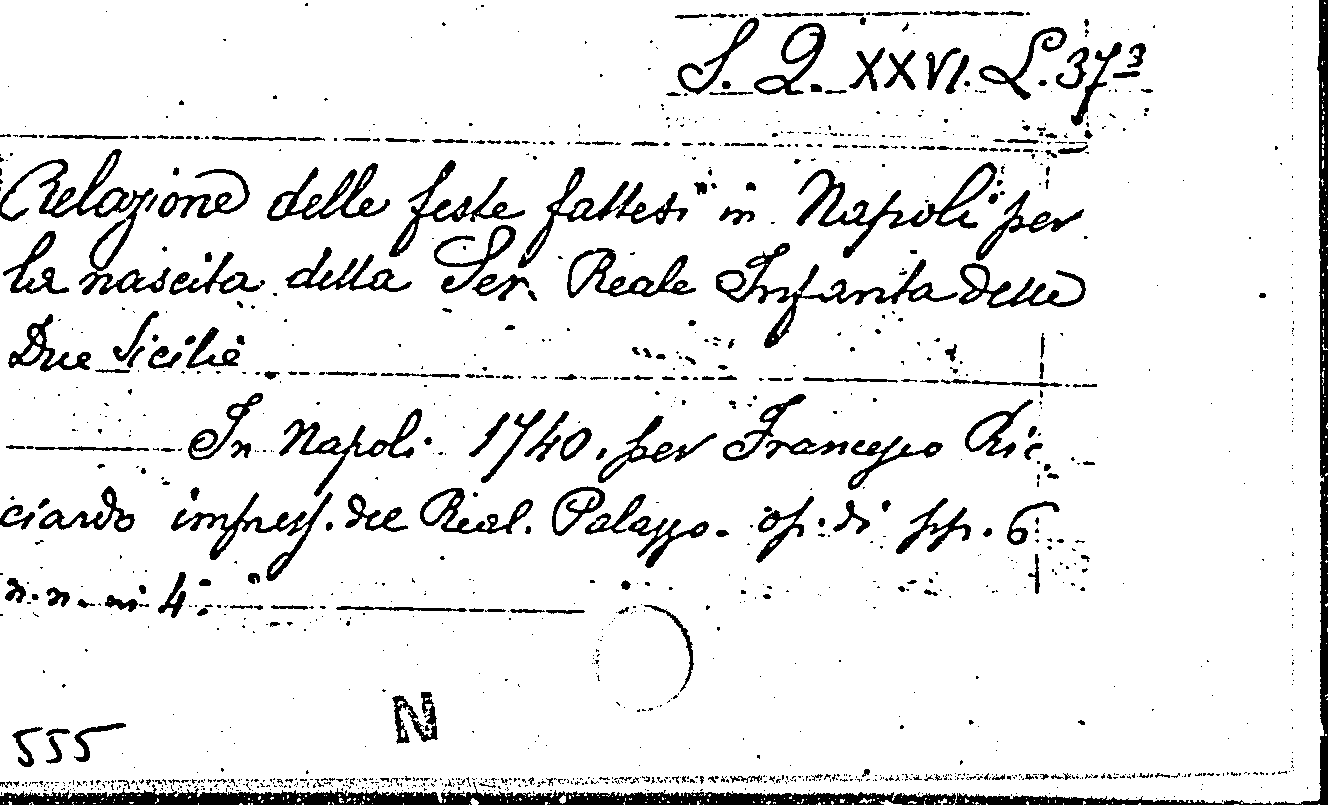 S. Q. XXVI. L. 37³
Relazione delle feste fattesi in Napoli per
la nascita della Ser. Reale Infanta delle
Due Sicilie
In Napoli 1740. per Francesco Ric
ciardo impress. del Real. Palazzo. op. di pp. 6
n.n. in 4.°
N
555